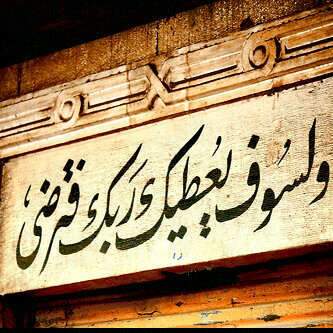 ولسوف يُعطيك رَبك فترضى